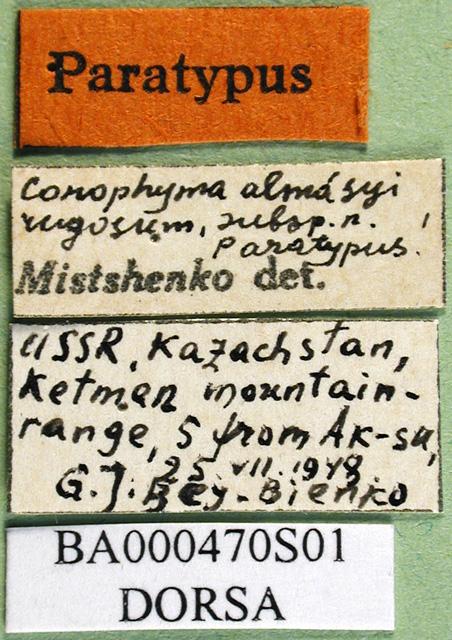 Paratypus
Conophyma almásyi
rugosum, subsp. n.
Paratypus.
Mistshenko det.
USSR, Kazachstan,
Ketman mountain-
range, S from Ak-su,
25. VII. 1948.
G. J. Bey-Bienko
BA000470S01
DORSA